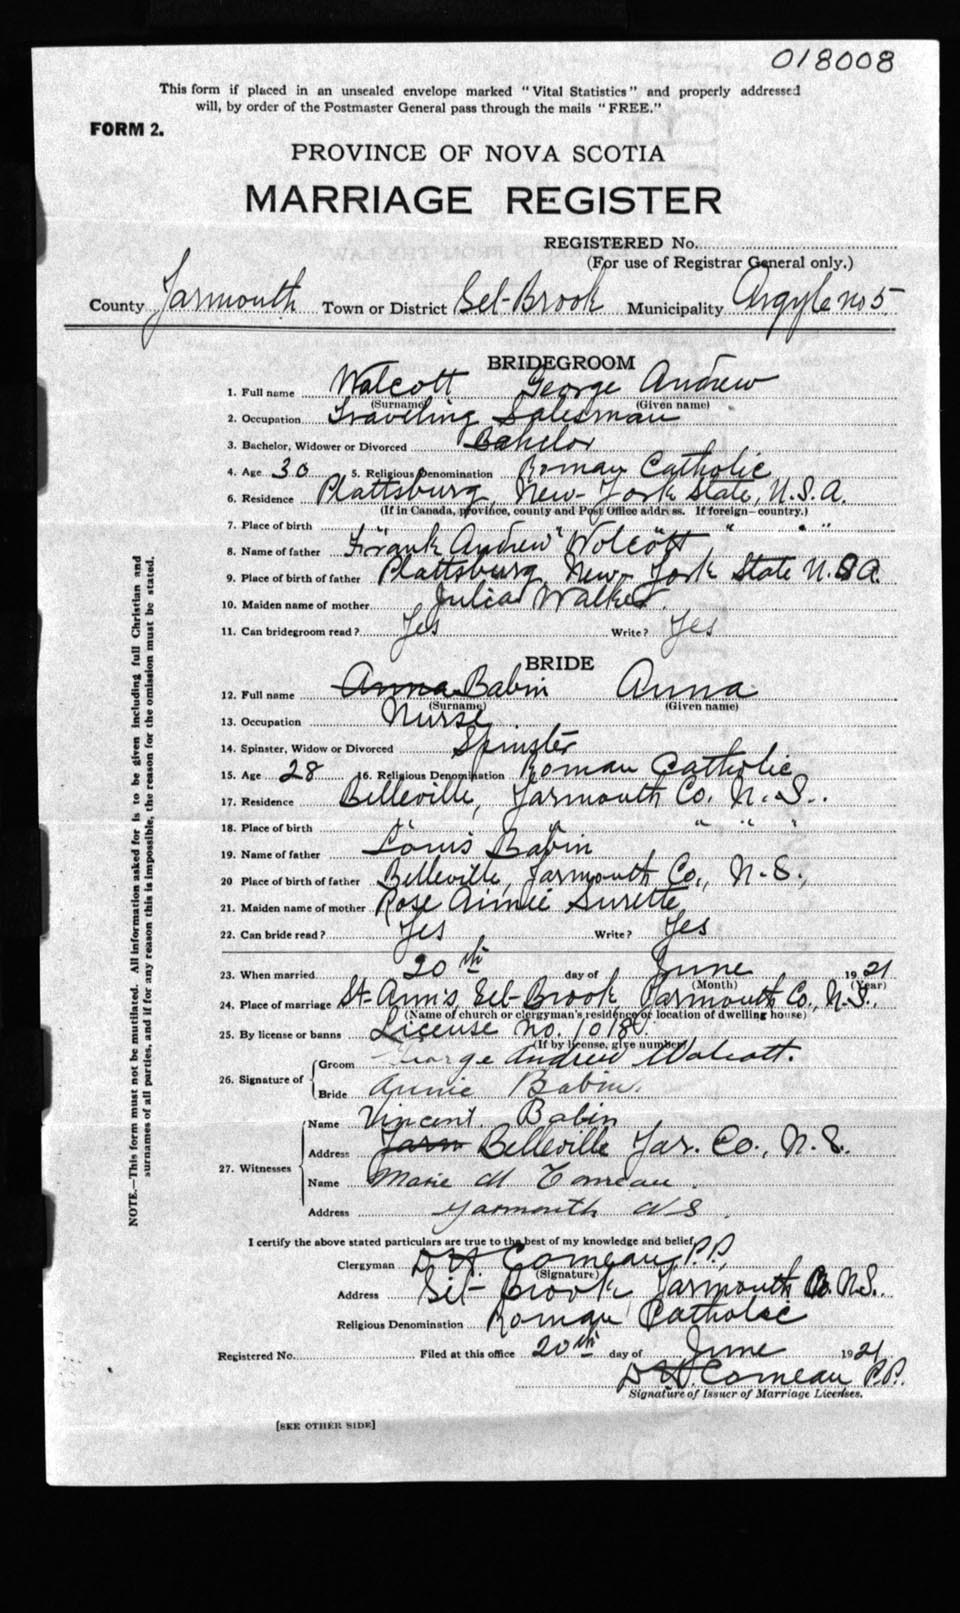 018008
This form if placed in an unsealed envelope marked "Vital Statistics" and properly addressed
will, by order of the Postmaster General pass through the mails "FREE."
FORM 2.
PROVINCE OF NOVA SCOTIA
MARRIAGE REGISTER
REGISTERED No.
(For use of Registrar General only.)
County Yarmouth Town or District Eel-Brook Municipality Argyle no 5
BRIDEGROOM
1. Full name Wolcott George Andrew
(Surname) (Given name)
2. Occupation Traveling Salesman
3. Bachelor, Widower or Divorced Bachelor
4. Age 30 5. Religious Denomination Roman Catholic
6. Residence Plattsburg, New-York State, U.S.A.
(If in Canada, province, county and Post Office address. If foreign—country.)
7. Place of birth " " " " "
8. Name of father Frank Andrew Wolcott
9. Place of birth of father Plattsburg New-York State U.S.A.
10. Maiden name of mother Julia Walker.
11. Can bridegroom read? Yes Write? Yes
BRIDE
12. Full name Anna Babin Anna
(Surname) (Given name)
13. Occupation Nurse.
14. Spinster, Widow or Divorced Spinster
15. Age 28 16. Religious Denomination Roman Catholic
17. Residence Belleville, Yarmouth Co. N.S.
18. Place of birth " " " " "
19. Name of father Louis Babin
20 Place of birth of father Belleville, Yarmouth Co., N.S.,
21. Maiden name of mother Rose Aimée Surette
22. Can bride read? Yes Write? Yes
23. When married 20th day of June 1921
(Month) (Year)
24. Place of marriage St-Ann's, Eel-Brook Yarmouth Co., N.S.
(Name of church or clergyman's residence or location of dwelling house)
25. By license or banns License No. 10180
(If by license, give number)
26. Signature of
Groom George Andrew Wolcott.
Bride Annie Babin.
27. Witnesses
Name Vincent Babin
Address Yarm Belleville Yar. Co., N.S.
Name Marie M Comeau.
Address Yarmouth N S.
I certify the above stated particulars are true to the best of my knowledge and belief.
Clergyman D.H. Comeau P.P.,
(Signature)
Address Eel-Brook, Yarmouth Co. N.S.
Religious Denomination Roman Catholic
Registered No. Filed at this office 20th day of June 1921
D.H. Comeau P.P.
Signature of Issuer of Marriage Licenses.
[SEE OTHER SIDE]
NOTE.—This form must not be mutilated. All information asked for is to be given including full Christian and
surnames of all parties, and if for any reason this is impossible, the reason for the omission must be stated.